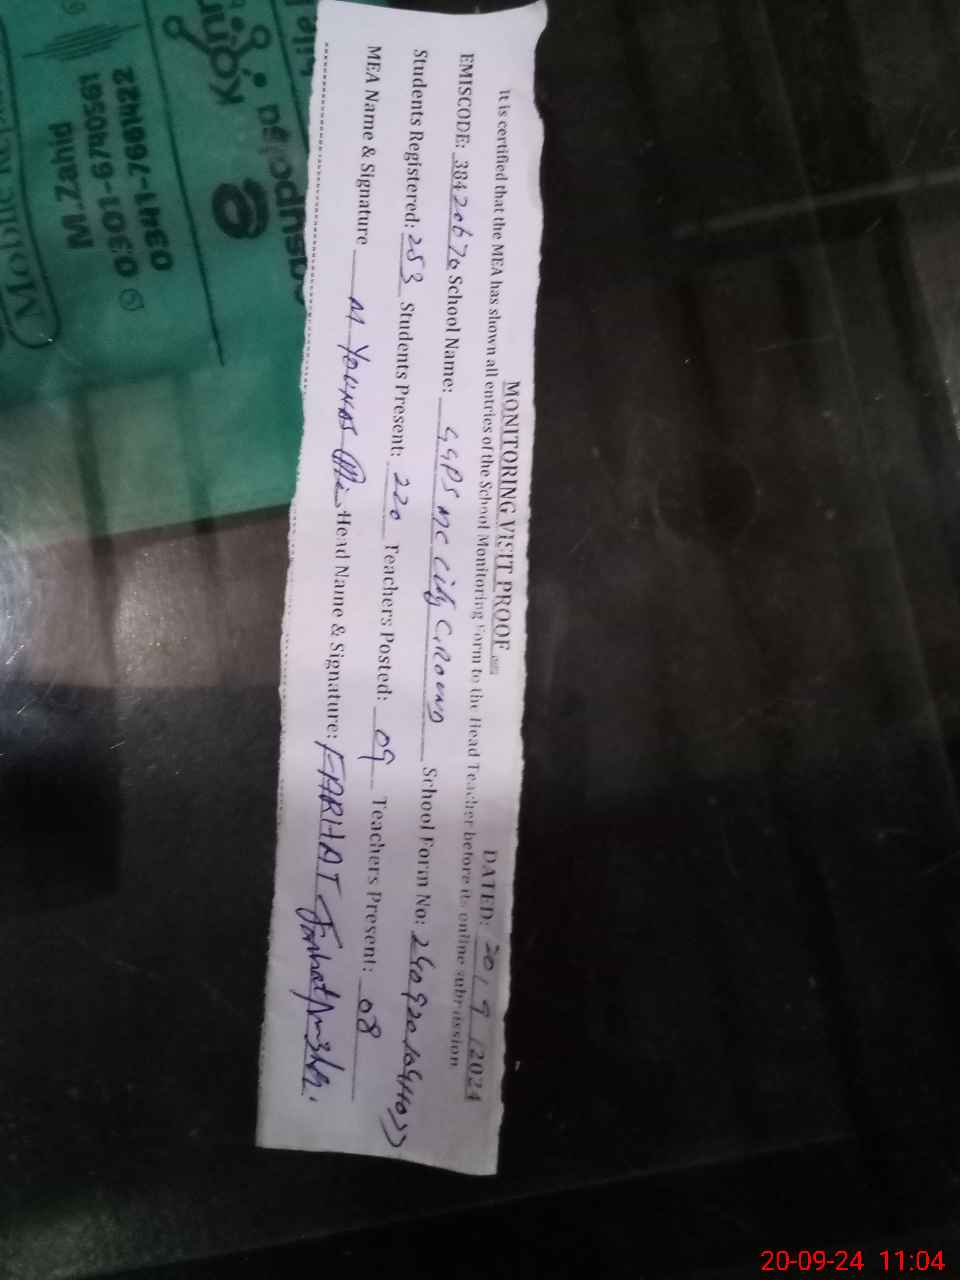 MONITORING VISIT PROOF
DATED: 20/9/2024
It is certified that the MEA has shown all entries of the School Monitoring Form to the Head Teacher before its online submission
EMISCODE: 38420670 School Name: GGPS MC City GROUND School Form No:
Students Registered: 253 Students Present: 220 Teachers Posted: 09 Teachers Present: 08
MEA Name & Signature M YOUNAS Head Name & Signature: FARHAT
M.Zahid
0301-6740561
0341-7661422
20-09-24 11:04